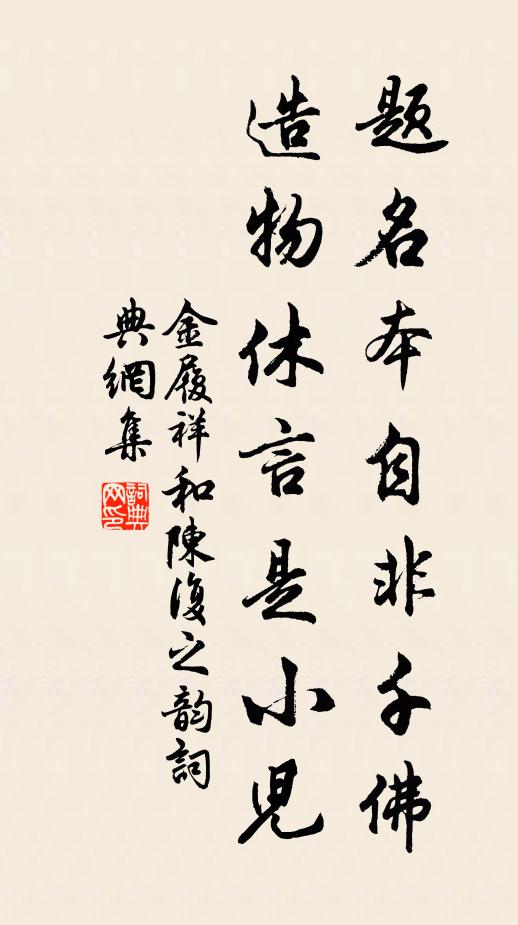 題名本自非千佛
造物休言是小兒
金履祥和陳復之韵詞
典網集
詞典网印